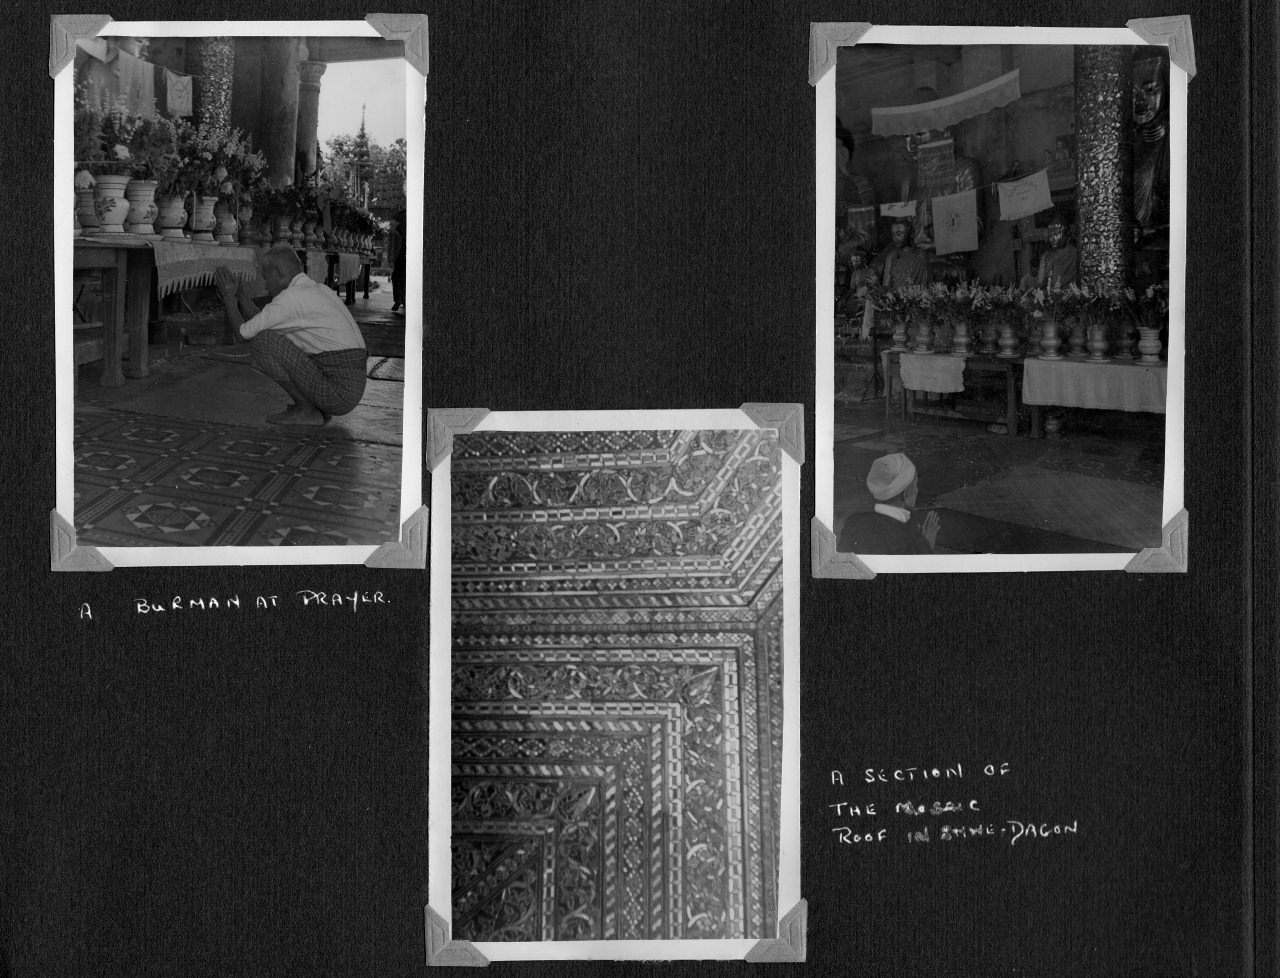 A BURMAN AT PRAYER.
A SECTION OF
THE MOSAIC
ROOF IN SHWE-DAGON